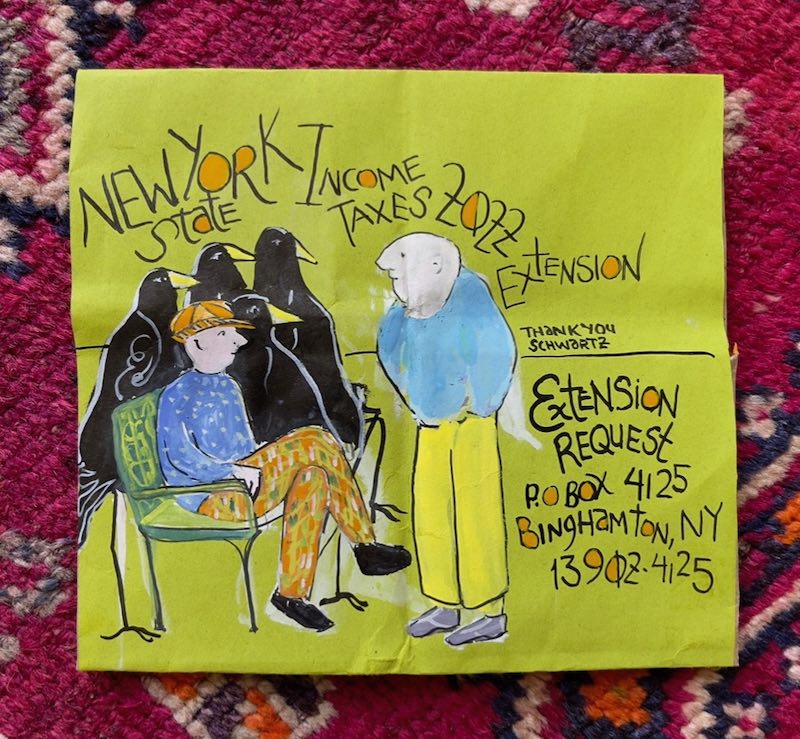 NEW YORK
State
INCOME
TAXES 2022
EXtENSION
THANK YOU
SCHWARTZ
EXtENSION
REQUEST
P.O BOX 4125
BINGHAMtON, NY
13902-4125